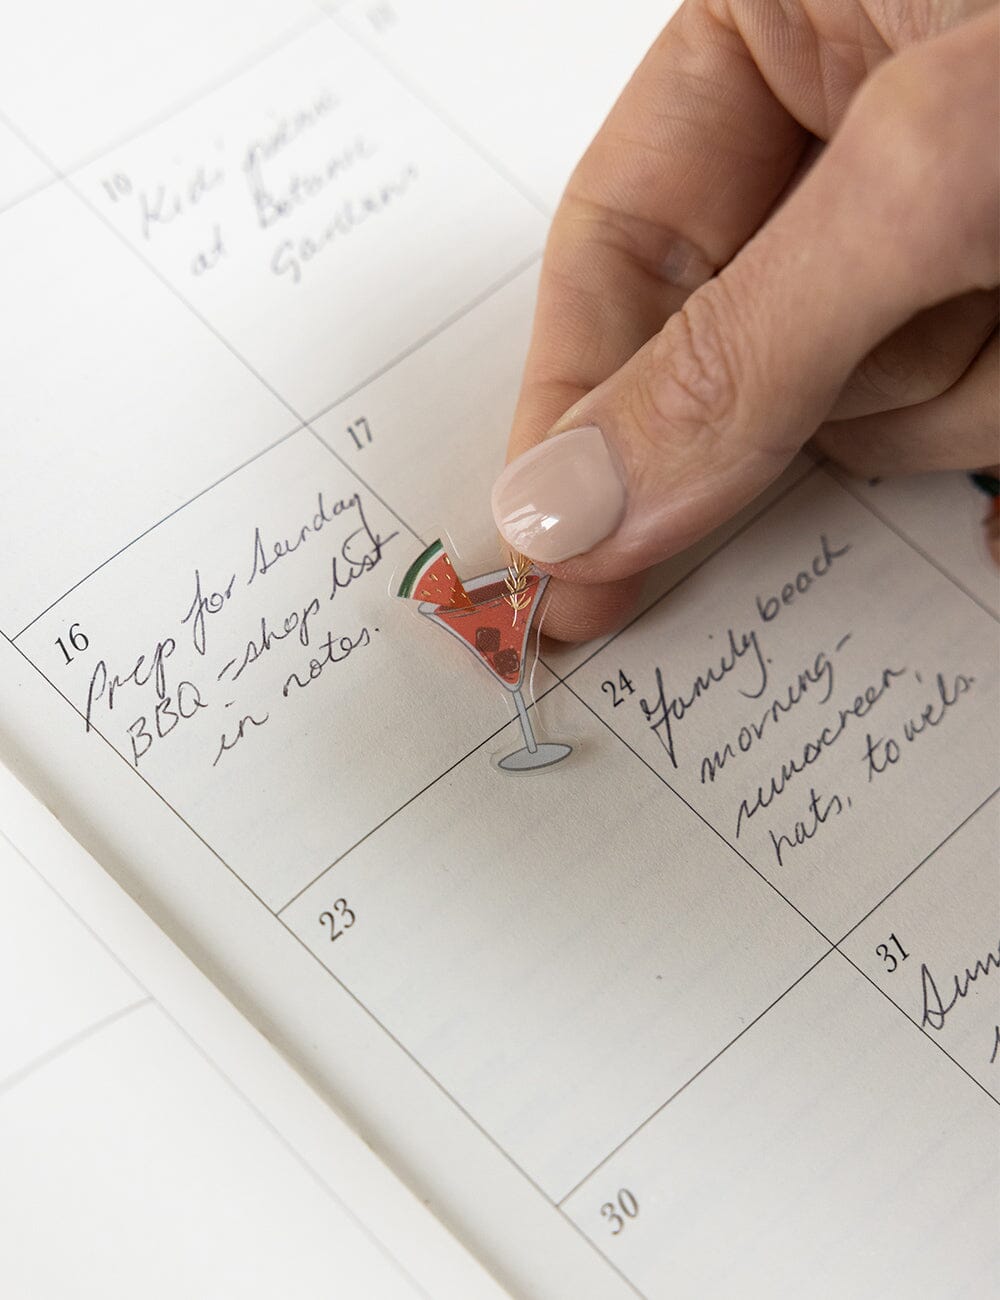 10
Kids' picnic
at Botanic
Gardens
17
16
Prep for Sunday
BBQ - shop list
in notes.
24
Family beach
morning -
sunscreen,
hats, towels.
23
31
30